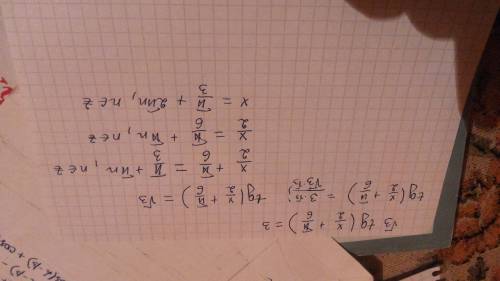 √3 tg(x/2 + π/6) = 3
tg(x/2 + π/6) = 3·√3/√3·√3; tg(x/2 + π/6) = √3
x/2 + π/6 = π/3 + πn, n ∈ z
x/2 = π/6 + πn, n ∈ z
x = π/3 + 2πn, n ∈ z